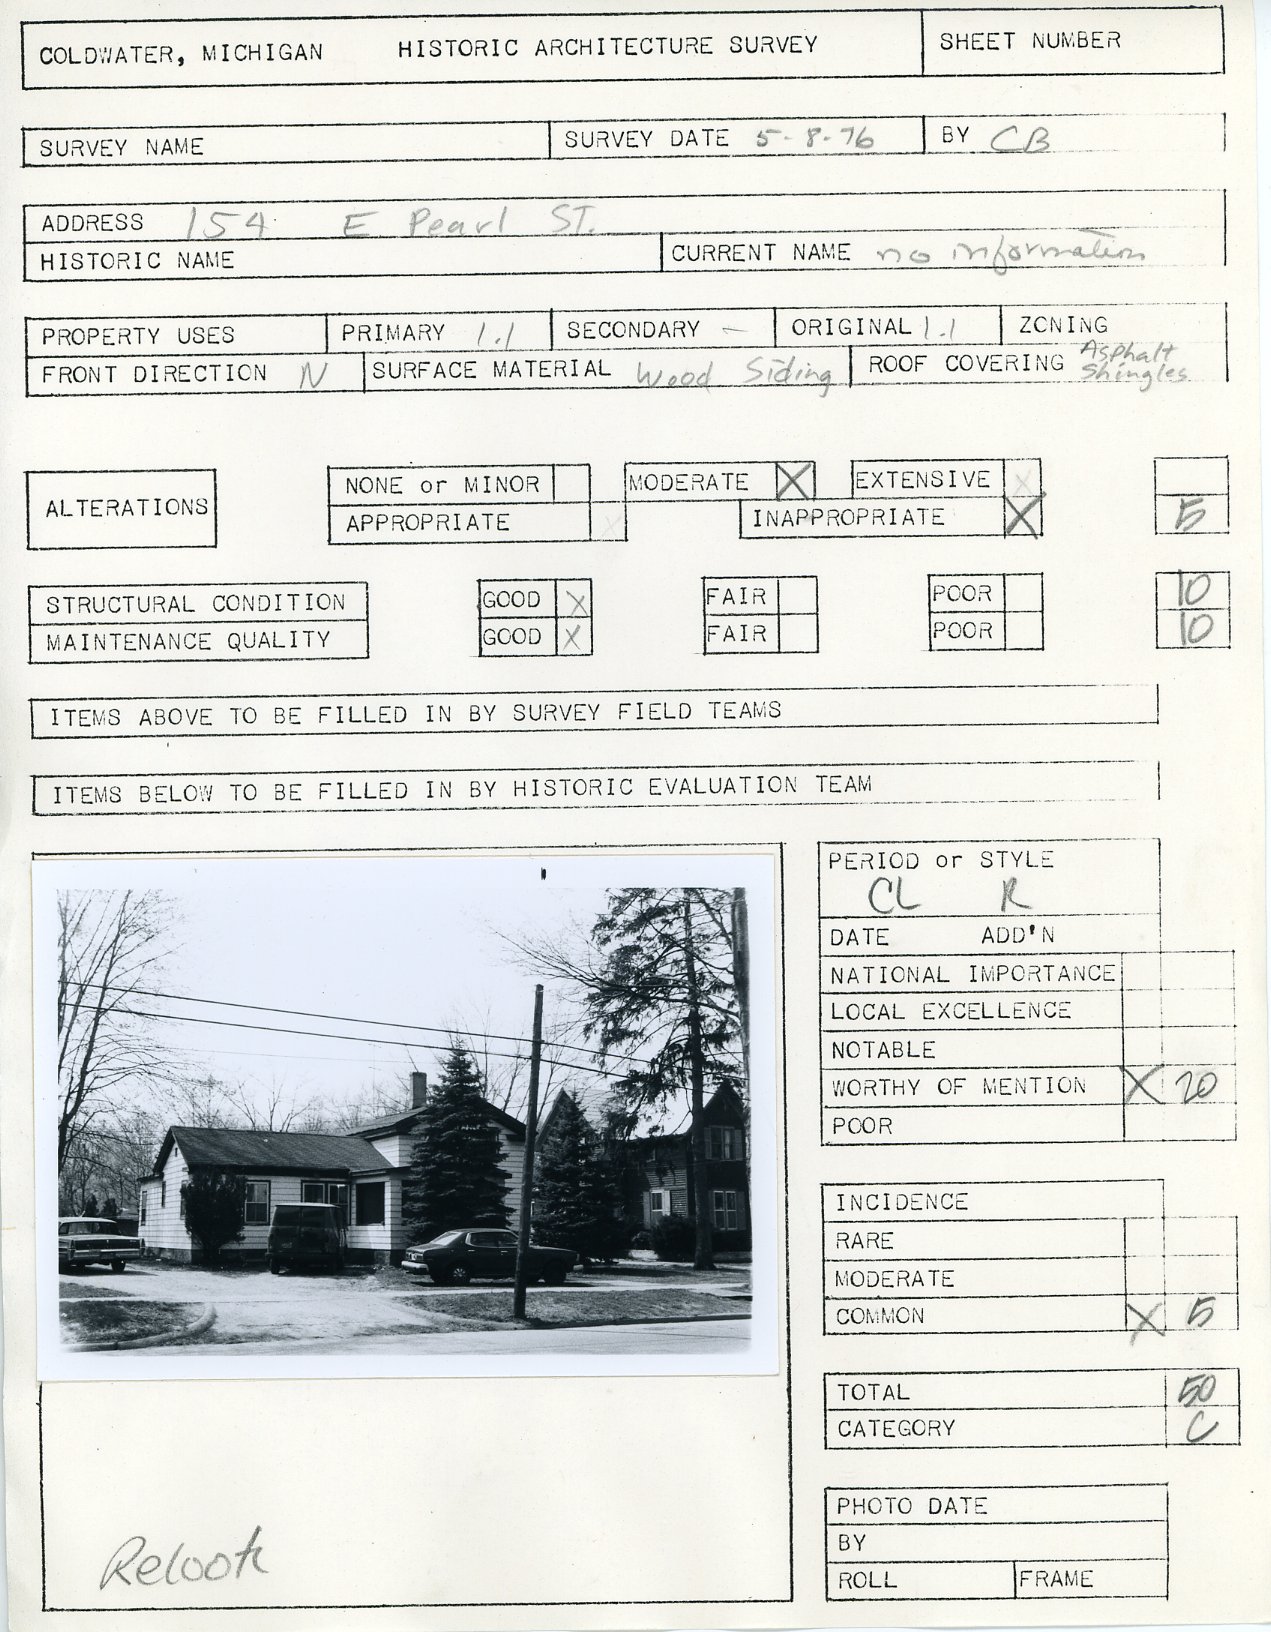 COLDWATER, MICHIGAN HISTORIC ARCHITECTURE SURVEY SHEET NUMBER
SURVEY NAME SURVEY DATE 5-8-76 BY CB
ADDRESS 154 E Pearl ST.
HISTORIC NAME CURRENT NAME no information
PROPERTY USES PRIMARY 1.1 SECONDARY — ORIGINAL 1.1 ZONING
FRONT DIRECTION N SURFACE MATERIAL Wood Siding ROOF COVERING Asphalt Shingles
ALTERATIONS NONE or MINOR MODERATE X EXTENSIVE X
APPROPRIATE X INAPPROPRIATE X 5
STRUCTURAL CONDITION GOOD X FAIR POOR 10
MAINTENANCE QUALITY GOOD X FAIR POOR 10
ITEMS ABOVE TO BE FILLED IN BY SURVEY FIELD TEAMS
ITEMS BELOW TO BE FILLED IN BY HISTORIC EVALUATION TEAM
PERIOD or STYLE
CL R
DATE ADD'N
NATIONAL IMPORTANCE
LOCAL EXCELLENCE
NOTABLE
WORTHY OF MENTION X 20
POOR
INCIDENCE
RARE
MODERATE
COMMON X 5
TOTAL 50
CATEGORY C
PHOTO DATE
BY
ROLL FRAME
Relook